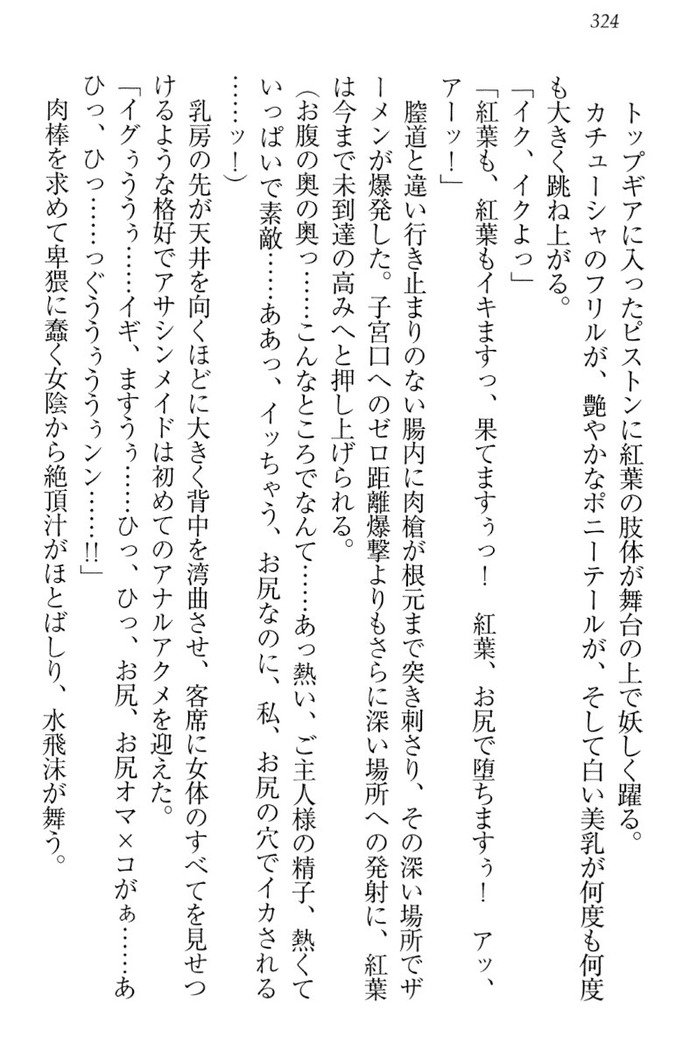 324
トップギアに入ったピストンに紅葉の肢体が舞台の上で妖しく躍る。
カチューシャのフリルが、艶やかなポニーテールが、そして白い美乳が何度も何度
も大きく跳ね上がる。
「イク、イクよっ」
「紅葉も、紅葉もイキますっ、果てますぅっ！　紅葉、お尻で堕ちますぅ！　アッ、
アーッ！」
膣道と違い行き止まりのない腸内に肉槍が根元まで突き刺さり、その深い場所でザ
ーメンが爆発した。子宮口へのゼロ距離爆撃よりもさらに深い場所への発射に、紅葉
は今まで未到達の高みへと押し上げられる。
（お腹の奥の奥っ……こんなところでなんて……あっ熱い、ご主人様の精子、熱くて
いっぱいで素敵……ああっ、イッちゃう、お尻なのに、私、お尻の穴でイカされる
……ッ！）
乳房の先が天井を向くほどに大きく背中を湾曲させ、客席に女体のすべてを見せつ
けるような格好でアサシンメイドは初めてのアナルアクメを迎えた。
「イグぅううぅ……イギ、ますうぅ……ひっ、ひっ、お尻、お尻オマ×コがぁ……あ
ひっ、ひっ……っぐううぅううぅンン……!!」
肉棒を求めて卑猥に蠢く女陰から絶頂汁がほとばしり、水飛沫が舞う。